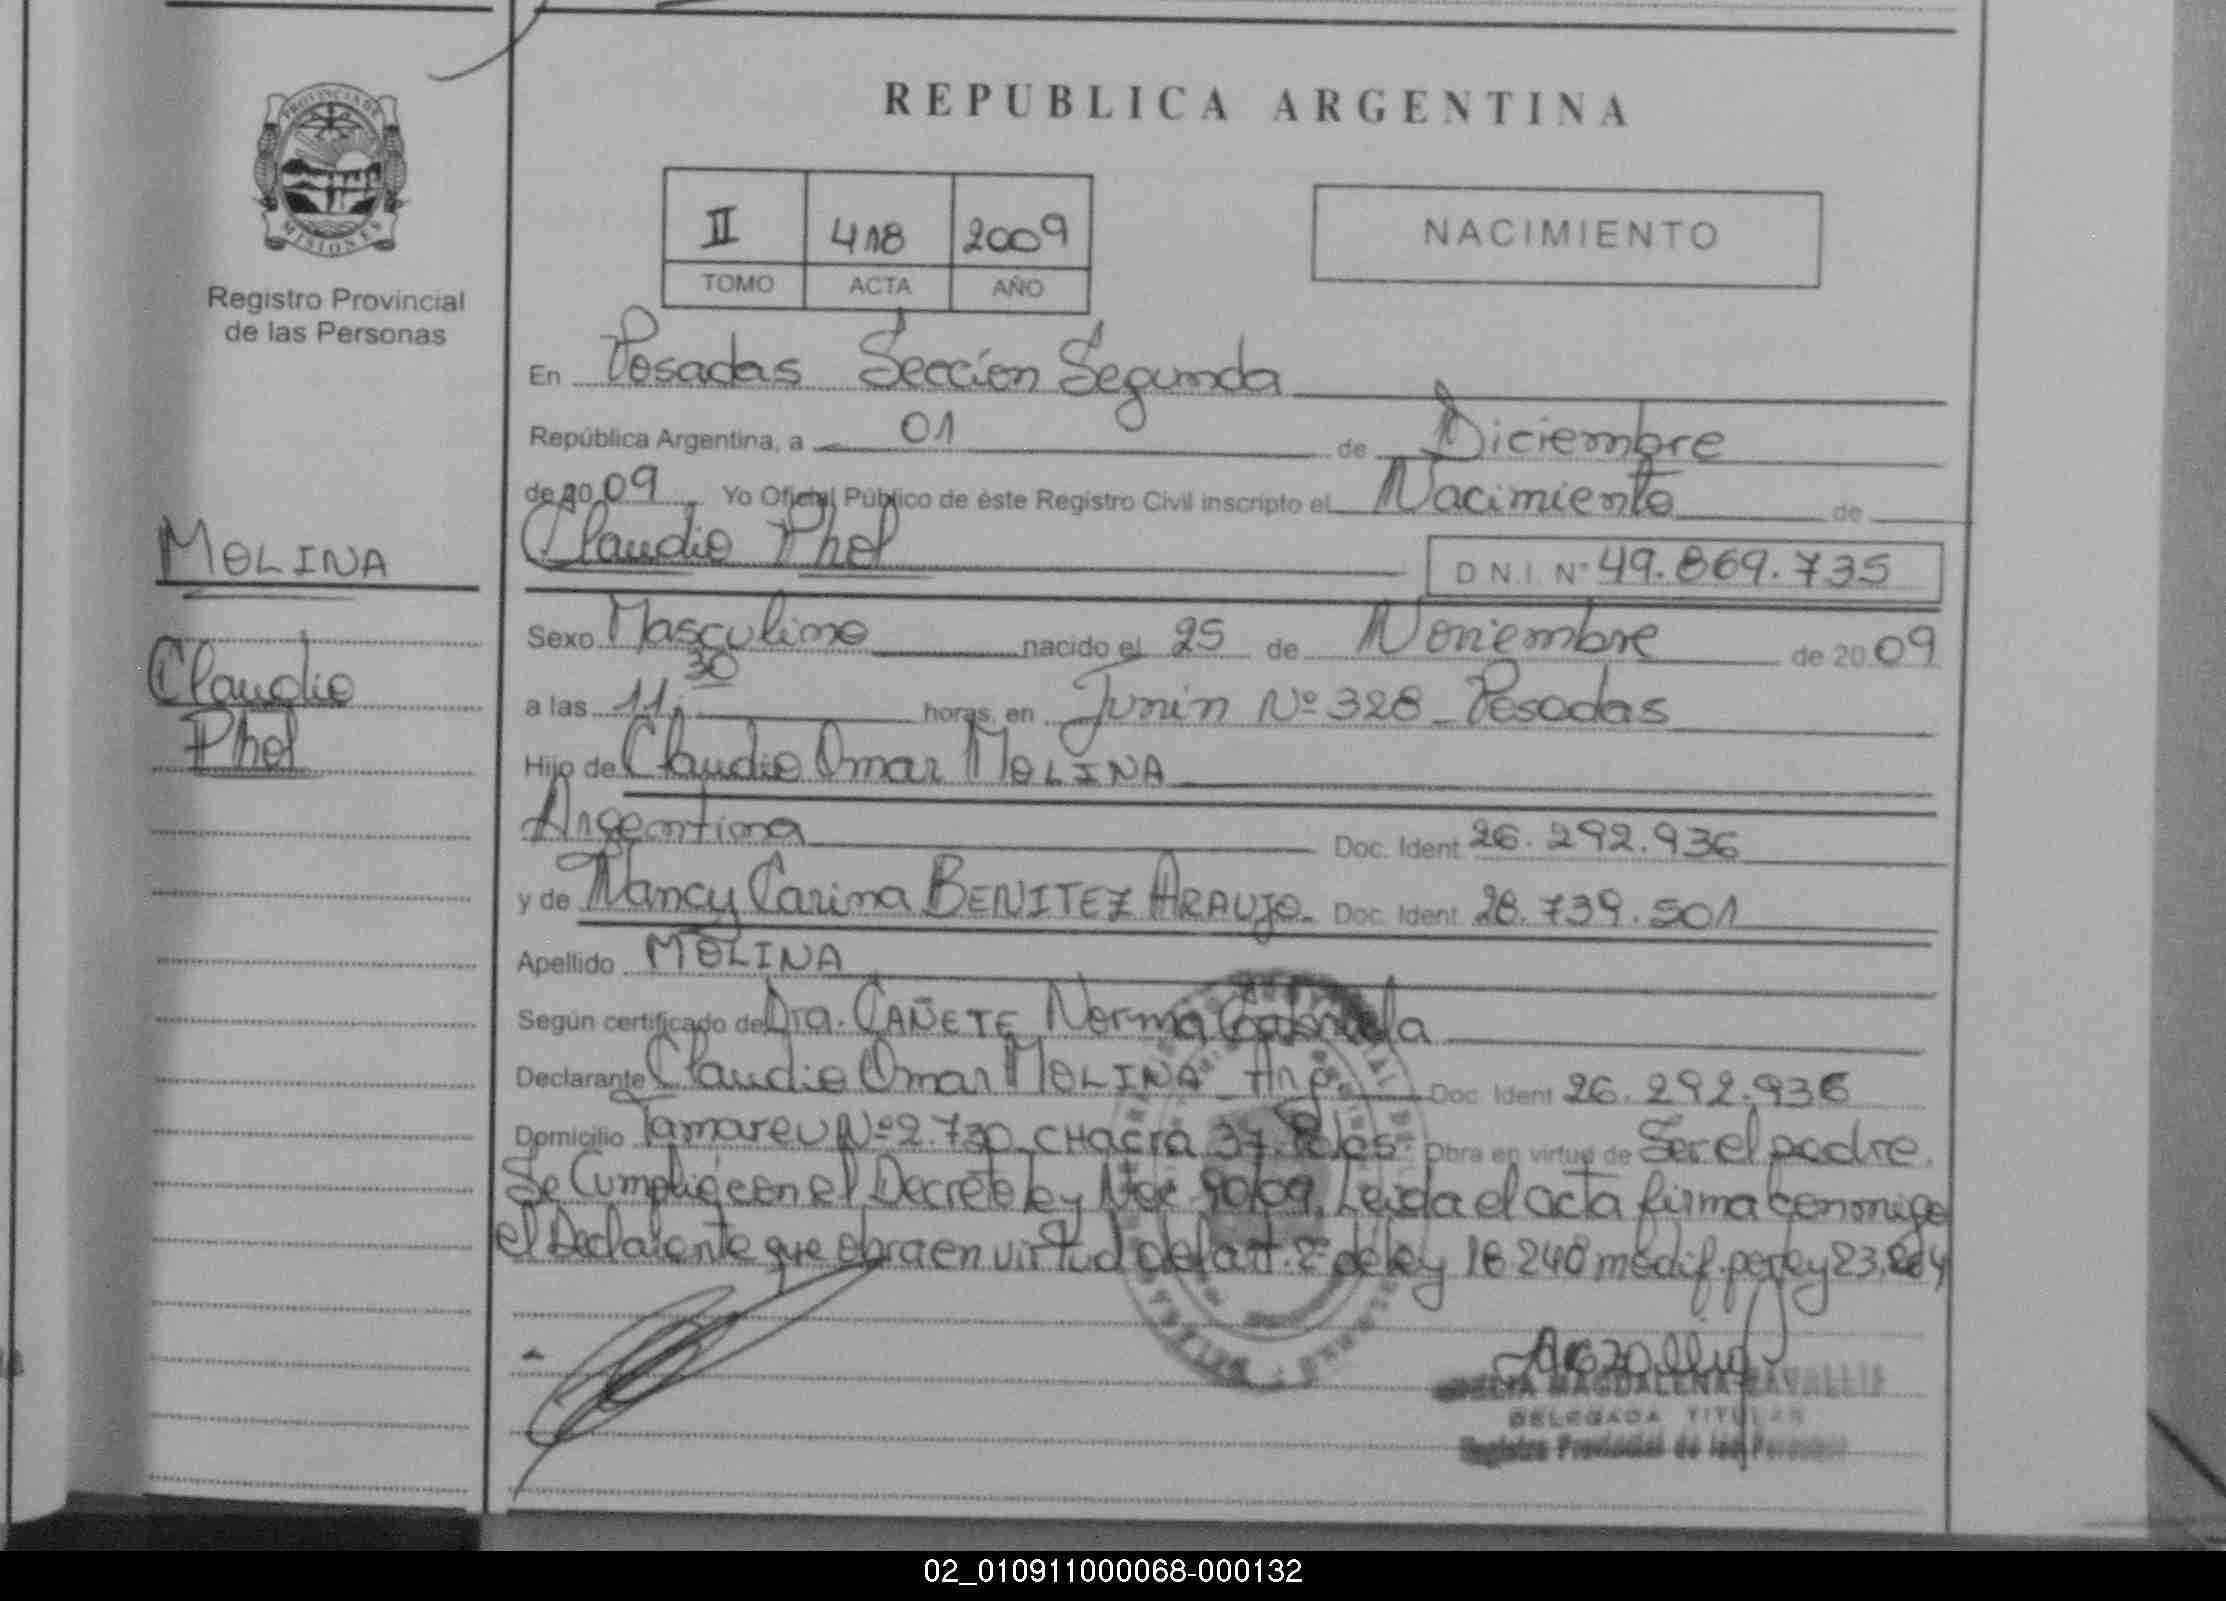 REPUBLICA ARGENTINA
PROVINCIA DE
MISIONES
Registro Provincial
de las Personas
II 418 2009
TOMO ACTA AÑO
NACIMIENTO
En Posadas Sección Segunda
República Argentina, a 01 de Diciembre
de 2009 Yo Oficial Público de éste Registro Civil inscripto el Nacimiento de
MOLINA
Claudio Phol
D N.I. N° 49.869.735
Sexo Masculino nacido el 25 de Noviembre de 2009
Claudio
Phol
a las 11,30 horas, en Junín Nº 328 Posadas
Hijo de Claudio Omar MOLINA
Argentina Doc. Ident 26.292.936
y de Nancy Carina BENITEZ ARAUJO Doc. Ident 28.739.501
Apellido MOLINA
Según certificado de Dra. CAÑETE Norma Gabriela
Declarante Claudio Omar MOLINA Arg. Doc. Ident 26.292.936
Domicilio Tamareu Nº 2.730 CHacra 37 Pdas. Obra en virtud de Ser el padre.
Se Cumplió con el Decreto ley Nac. 90/09. Leída el acta firma conmigo
el Declarante que obra en virtud del art. 2º de ley 18.248 modif. por ley
DELEGADA TITULAR
Registro Provincial de las Personas
02_010911000068-000132